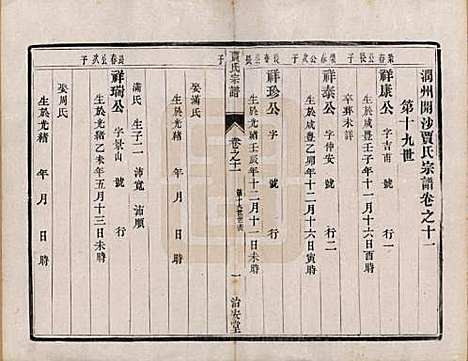 潤州開沙賈氏宗譜卷之十一
第十九世
祥康公 字吉甫 號 行一
生於咸豐壬子年十二月十六日酉時
卒葬未詳
祥泰公 字仲安 號 行二
生於咸豐乙卯年十二月十六日寅時
祥珍公 字 號 行
生於光緒壬辰年十二月十一日時
娶蒲氏
賈氏宗譜
卷之十一
第十九世
一
治安堂
生於光緒 年 月 日 時
祥瑞公 字景山 號 行
生於光緒乙未年五月十三日時
蒲氏 生子二 沛寬 沛順
娶周氏
生於光緒 年 月 日 時